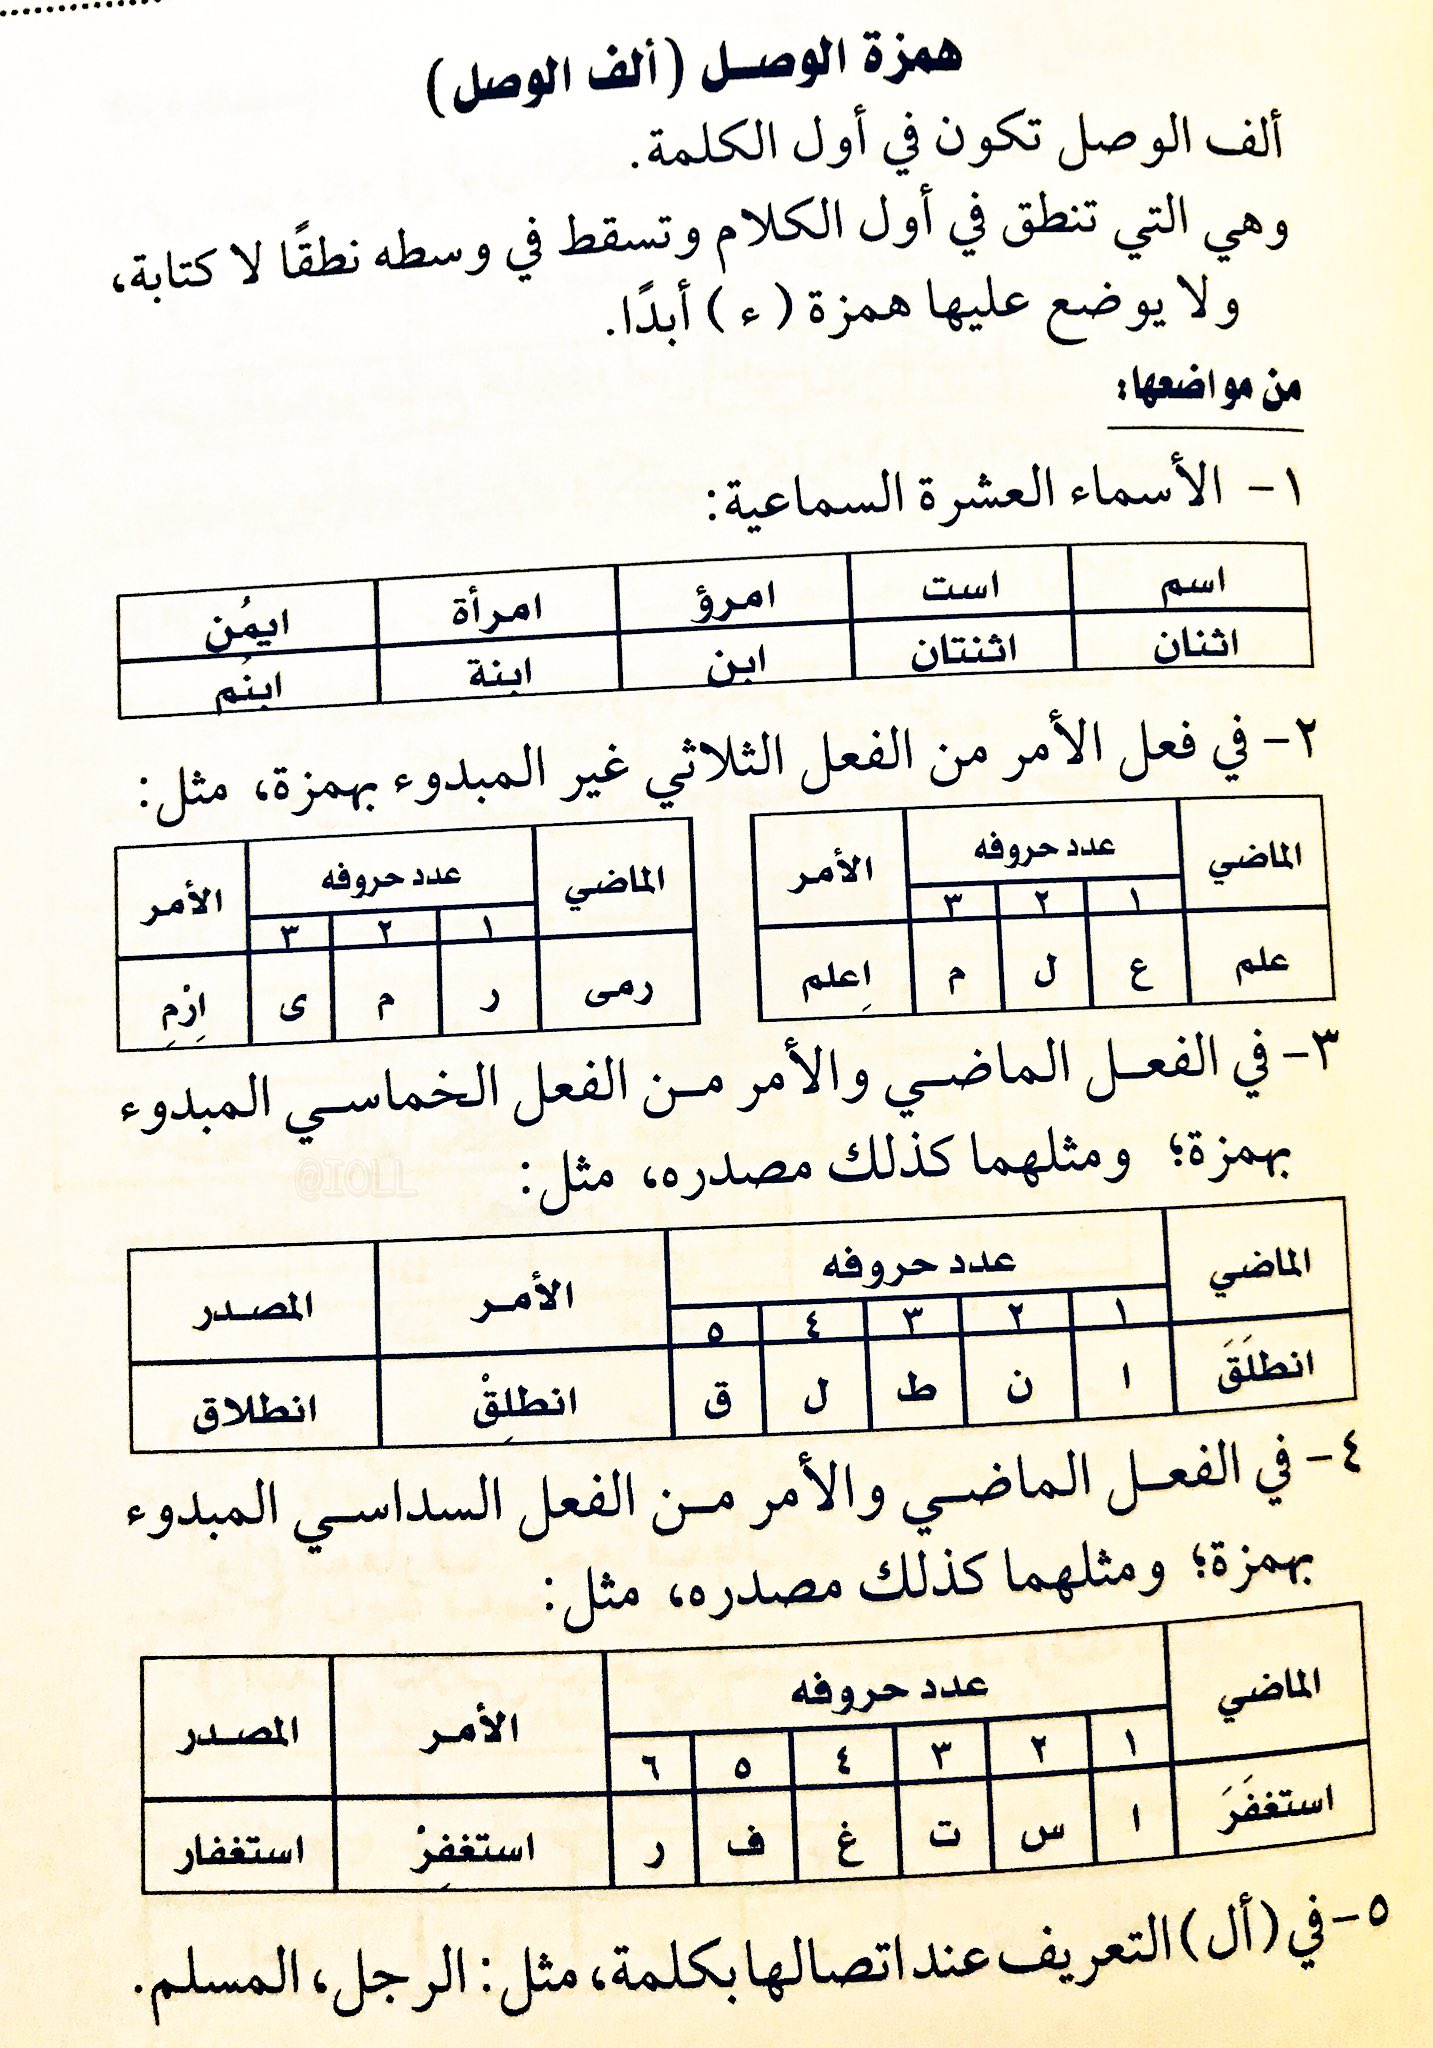 همزة الوصل (ألف الوصل)
ألف الوصل تكون في أول الكلمة.
وهي التي تنطق في أول الكلام وتسقط في وسطه نطقًا لا كتابة،
ولا يوضع عليها همزة (ء) أبدًا.
من مواضعها:
١- الأسماء العشرة السماعية:
اسم است امرؤ امرأة ايمُن
اثنان اثنتان ابن ابنة ابنُم
٢- في فعل الأمر من الفعل الثلاثي غير المبدوء بهمزة، مثل:
الماضي عدد حروفه الأمر
١ ٢ ٣
علم ع ل م اِعلم
الماضي عدد حروفه الأمر
١ ٢ ٣
رمى ر م ى اِرْمِ
٣- في الفعل الماضي والأمر من الفعل الخماسي المبدوء
بهمزة؛ ومثلهما كذلك مصدره، مثل:
@IOLL
الماضي عدد حروفه الأمر المصدر
١ ٢ ٣ ٤ ٥
انطلَقَ ا ن ط ل ق انطلِقْ انطلاق
٤- في الفعل الماضي والأمر من الفعل السداسي المبدوء
بهمزة؛ ومثلهما كذلك مصدره، مثل:
الماضي عدد حروفه الأمر المصدر
١ ٢ ٣ ٤ ٥ ٦
استغفَرَ ا س ت غ ف ر استغفِرْ استغفار
٥- في (أل) التعريف عند اتصالها بكلمة، مثل: الرجل، المسلم.